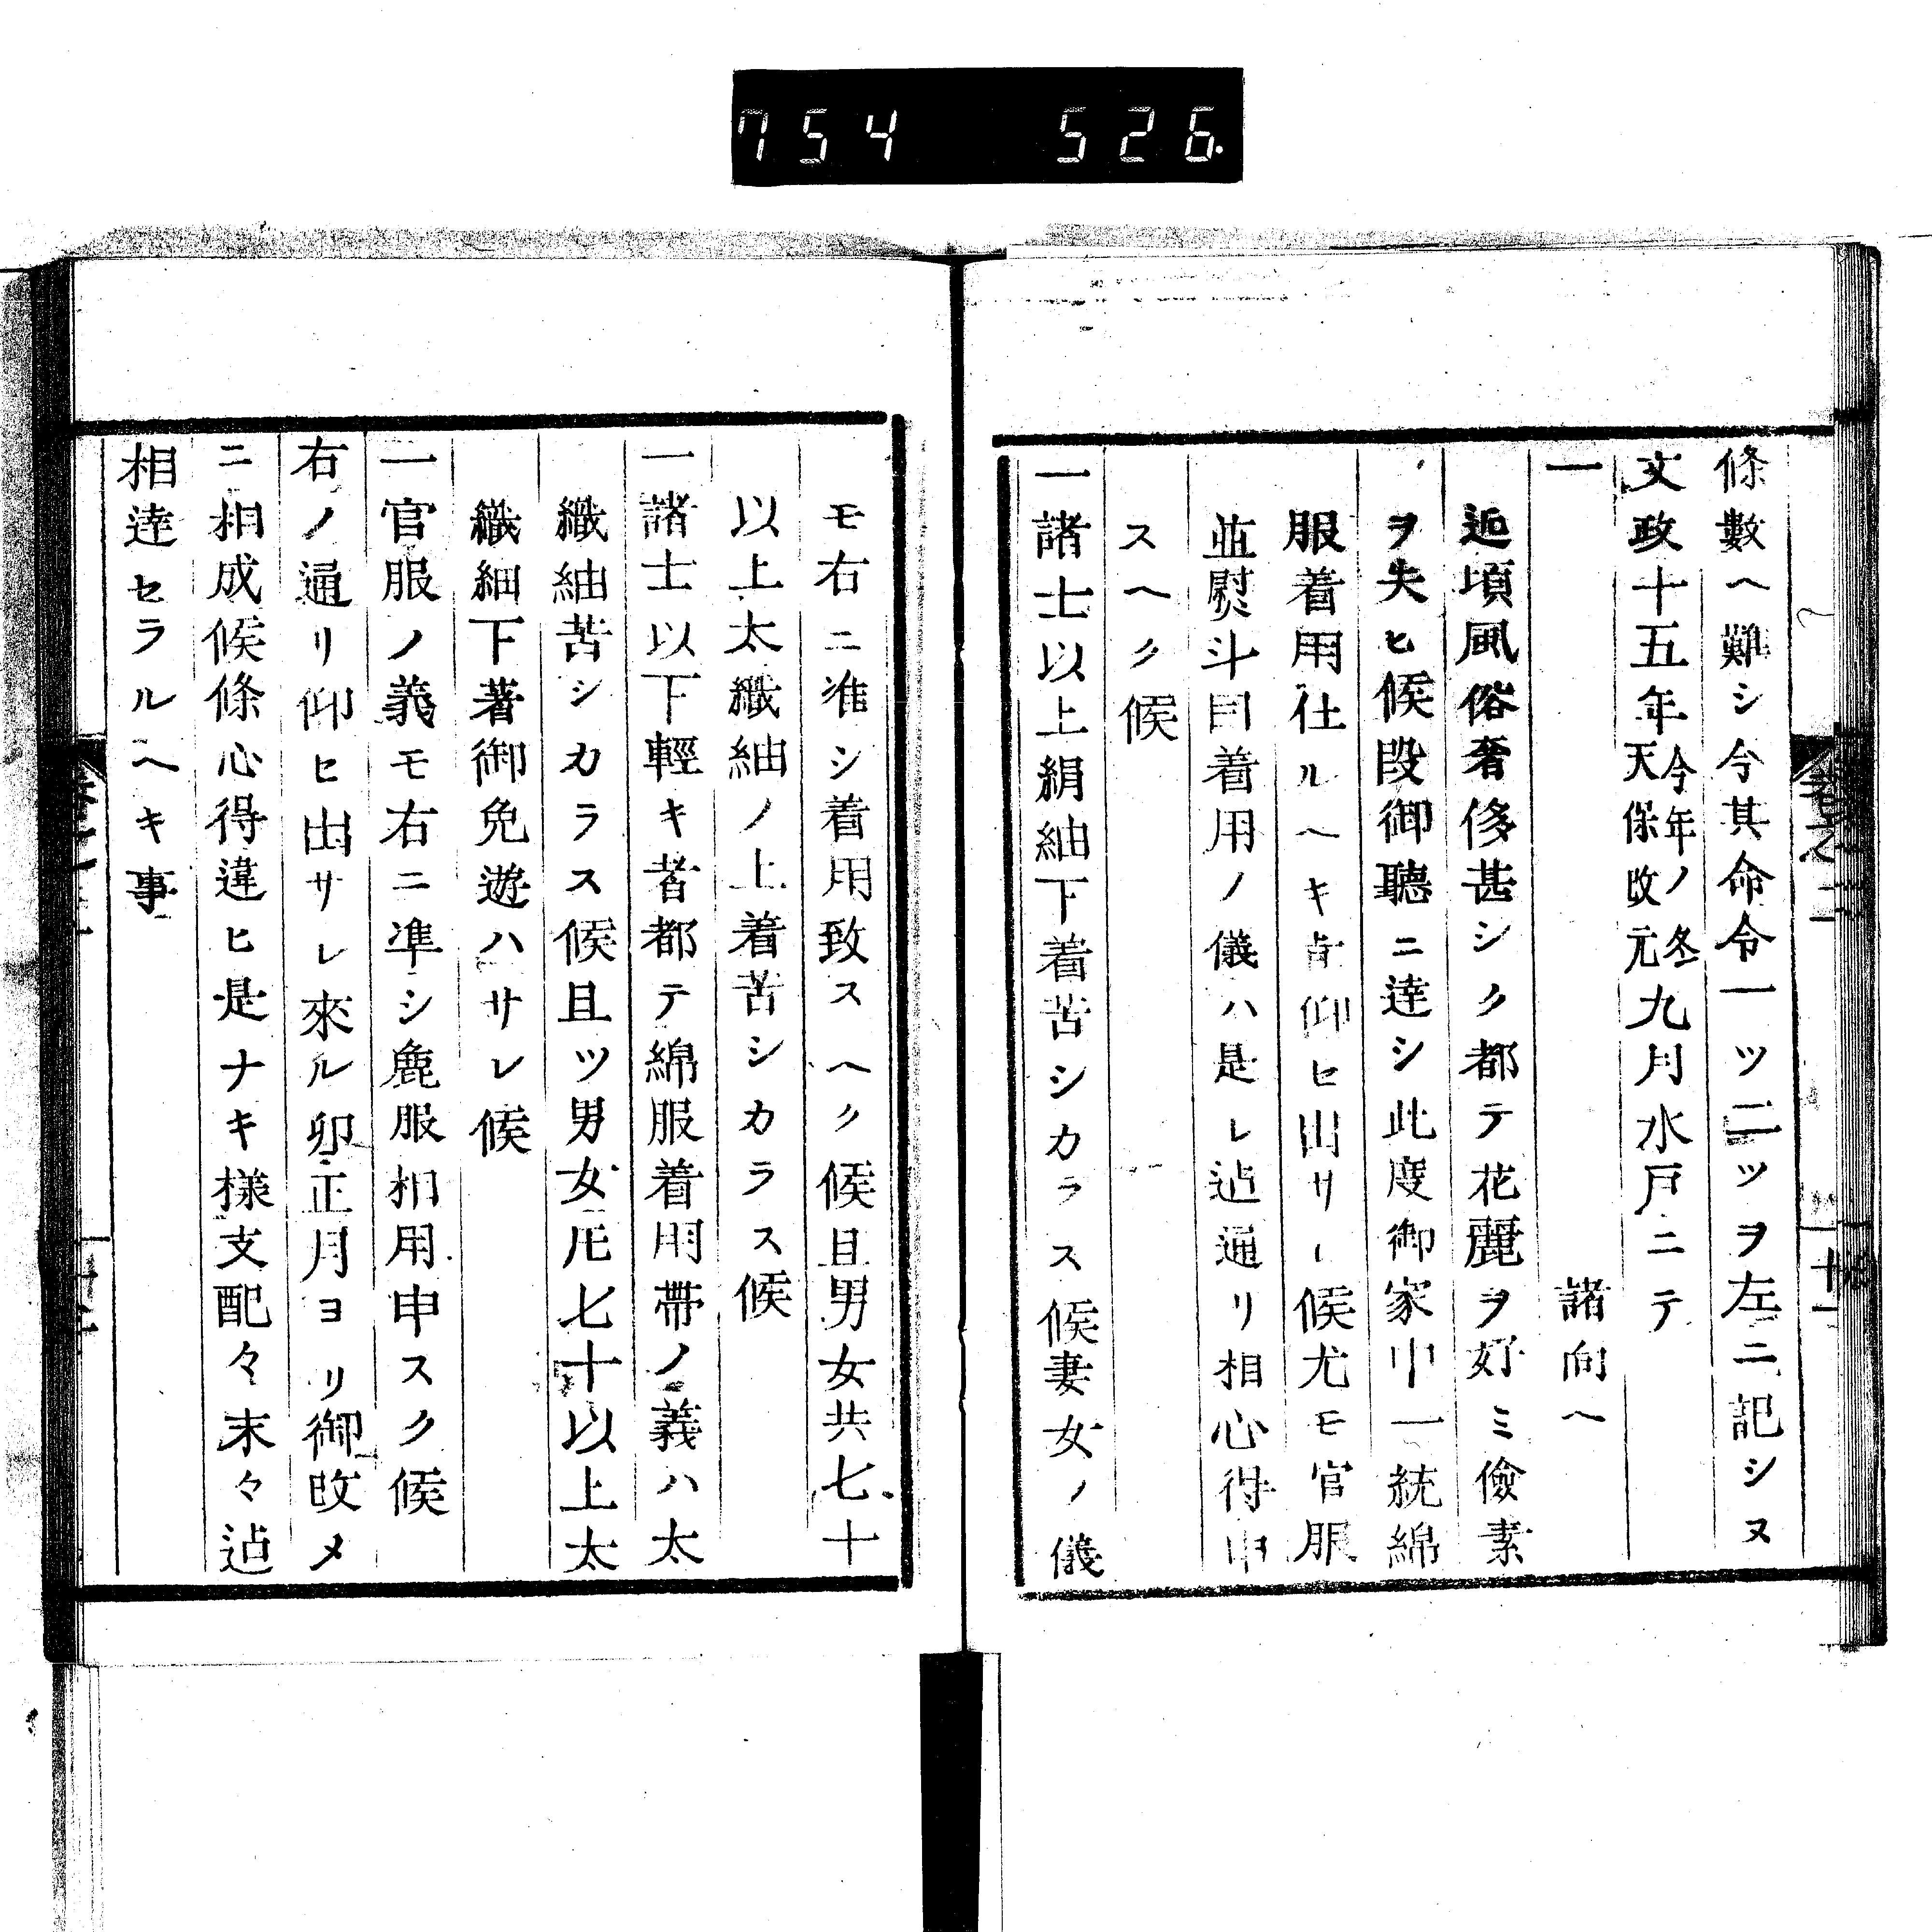 754 526.
條數ヘ難シ今其命令一ツ二ツヲ左ニ記シヌ
文政十五年今年ノ冬天保改元九月水戸ニテ
一 諸向ヘ
近頃風俗奢侈甚シク都テ花麗ヲ好ミ儉素
ヲ失ヒ候段御聽ニ達シ此度御家中一統綿
服着用仕ルヘキ旨仰ヒ出サレ候尤モ官服
並熨斗目着用ノ儀ハ是レ迠通リ相心得申
スヘク候
一諸士以上絹紬下着苦シカラス候妻女ノ儀
モ右ニ准シ着用致スヘク候且男女共七十
以上太織紬ノ上着苦シカラス候
一諸士以下輕キ者都テ綿服着用帶ノ義ハ太
織紬苦シカラス候且ツ男女凡七十以上太
織細下著御免遊ハサレ候
一官服ノ義モ右ニ準シ麁服相用申スク候
右ノ通リ仰ヒ出サレ來ル卯正月ヨリ御改メ
ニ相成候條心得違ヒ是ナキ様支配々末々迠
相達セラルヘキ事